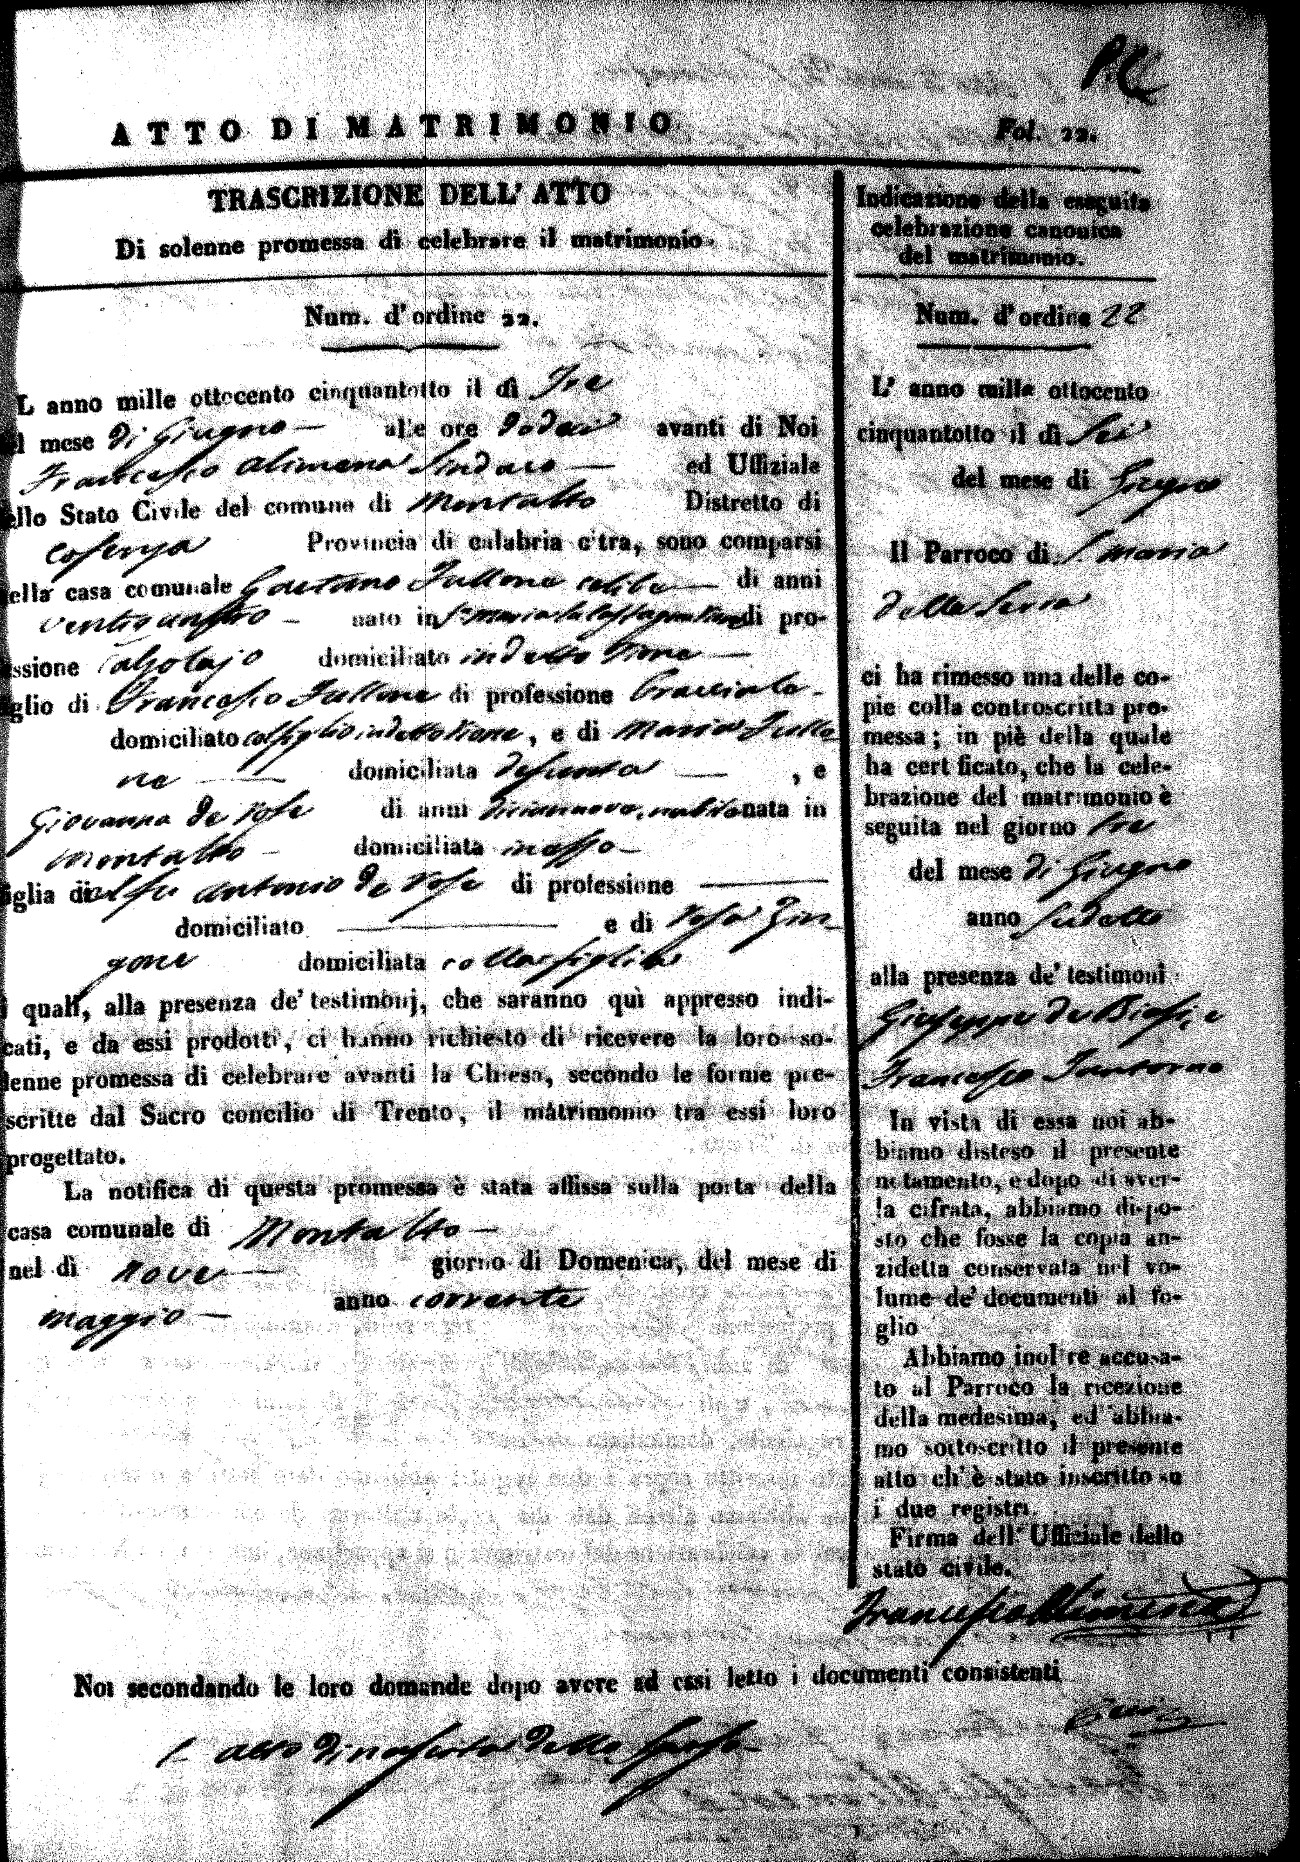 ATTO DI MATRIMONIO
Fol. 22.
TRASCRIZIONE DELL' ATTO
Di solenne promessa di celebrare il matrimonio.
Num. d'ordine 22.
L anno mille ottocento cinquantotto il dì Tre
l mese di Giugno — alle ore dodeci avanti di Noi
Francesco Alimena Sindaco — ed Uffiziale
ello Stato Civile del comune di Montalto Distretto di
Cosenza Provincia di calabria citra, sono comparsi
ella casa comunale Gaetano Fullone celibe — di anni
ventiquattro — nato in di pro-
ssione Calzolajo domiciliato in detto Tione —
glio di Francesco Fullone di professione Bracciale —
domiciliato col figlio in detto Tione, e di Maria Fullo
ne — domiciliata defunta — , e
Giovanna de Rose di anni diciannove, nubile nata in
Montalto — domiciliata in esso —
iglia di del fu Antonio de Rose di professione —
domiciliato — e di Rosa Zin
gone domiciliata colla figlia
i quali, alla presenza de' testimonj, che saranno quì appresso indi-
cati, e da essi prodotti, ci hanno richiesto di ricevere la loro so-
lenne promessa di celebrare avanti la Chiesa, secondo le forme pre-
scritte dal Sacro concilio di Trento, il matrimonio tra essi loro
progettato.
La notifica di questa promessa è stata affissa sulla porta della
casa comunale di Montalto —
nel dì nove — giorno di Domenica, del mese di
maggio — anno corrente
Indicazione della eseguita
celebrazione canonica
del matrimonio.
Num. d'ordine 22
L' anno mille ottocento
cinquantotto il dì Sei
del mese di Giugno
Il Parroco di S. Maria
della Serra
ci ha rimesso una delle co-
pie colla controscritta pro-
messa; in piè della quale
ha cert ficato, che la cele-
brazione del matrimonio è
seguita nel giorno tre
del mese di Giugno
anno sudetto
alla presenza de' testimoni
Giuseppe de Biase, e
Francesco Santoro
In vista di essa noi ab-
biamo disteso il presente
notamento, e dopo di aver-
la cifrata, abbiamo dispo-
sto che fosse la copia an-
zidetta conservata nel vo-
lume de' documenti al fo-
glio
Abbiamo inoltre accusa-
to al Parroco la ricezione
della medesima, ed abbia-
mo sottoscritto il presente
atto ch' è stato inscritto su
i due registri.
Firma dell' Uffiziale dello
stato civile.
Francesco Alimena
Noi secondando le loro domande dopo avere ad essi letto i documenti consistenti
1. atto di nascita dello sposo —